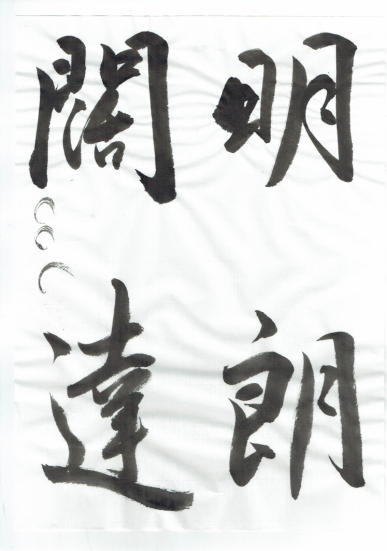 明朗
闊達